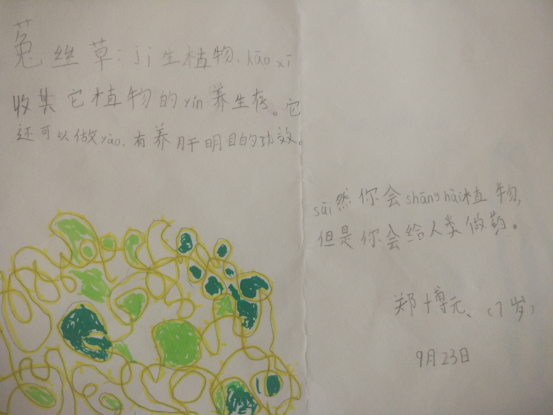 菟丝草：jì生植物，hāo xī
收其它植物的yín养生存。它
还可以做yào，有养肝明目的功效。
sāi然你会shāng hài植物，
但是你会给人类做药。
郑博元、（7岁）
9月23日